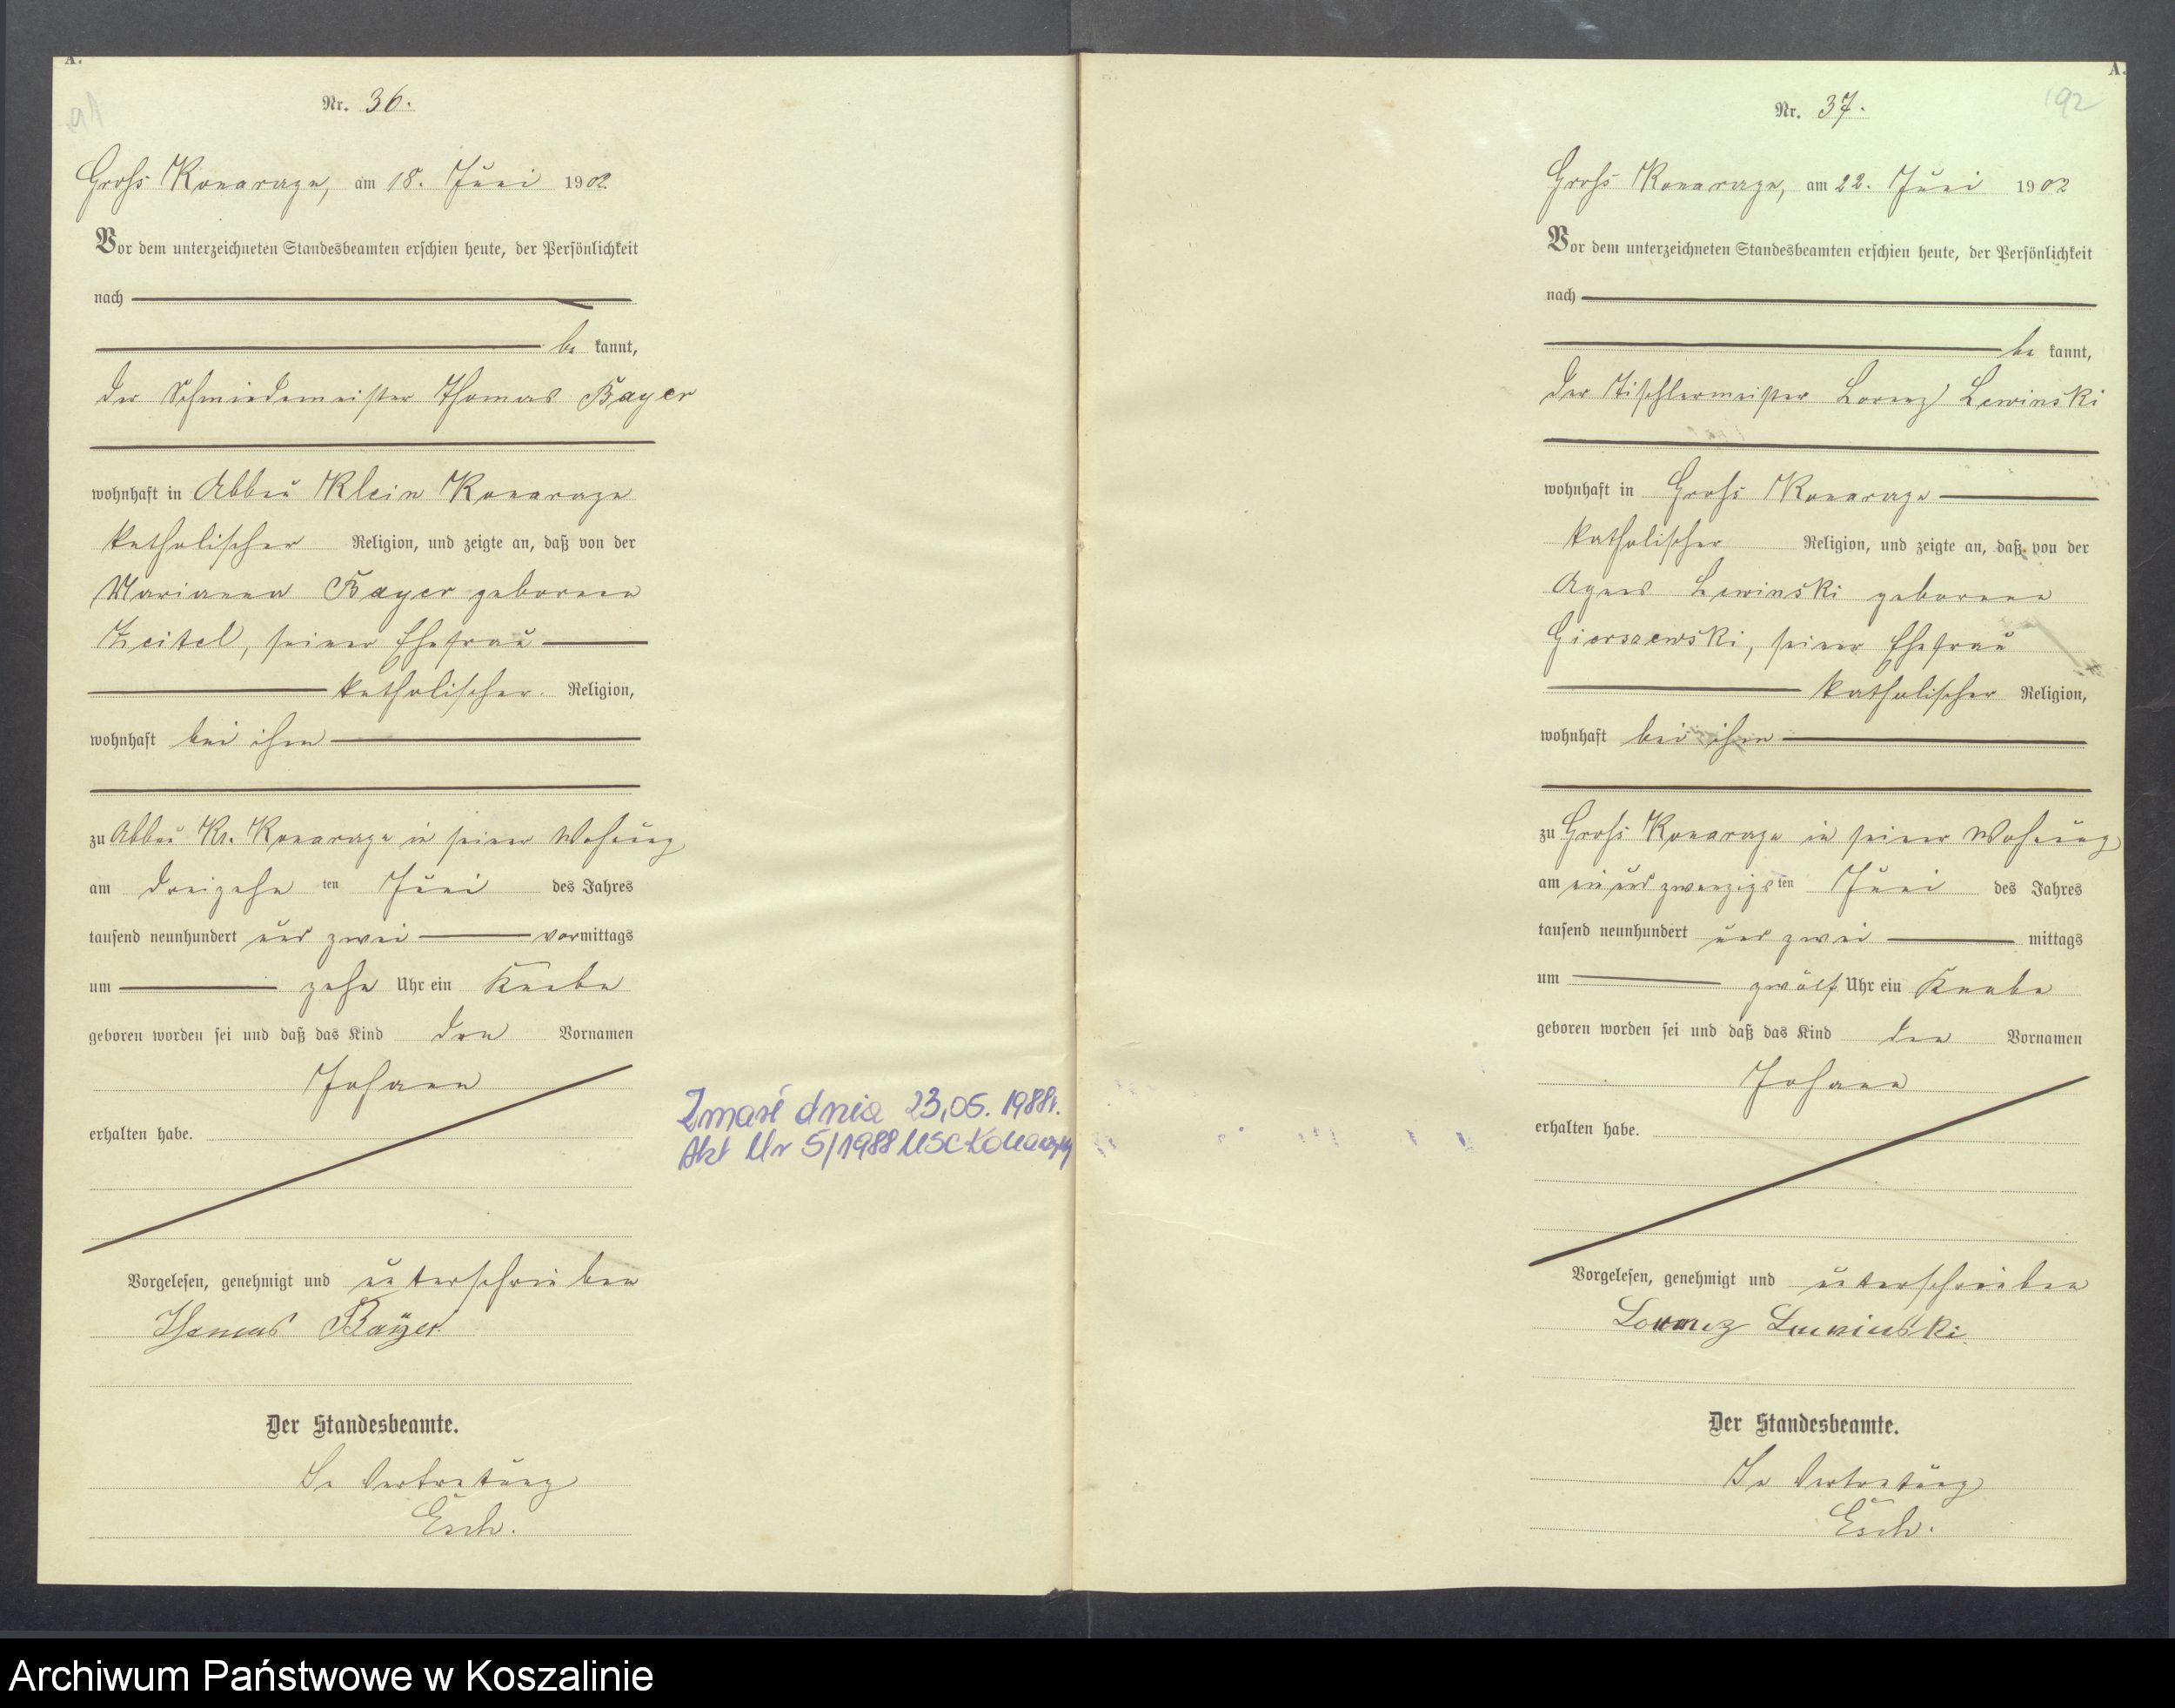 A.
91
Nr. 36.
Gross Konarczyn, am 18. Juni 1902
Vor dem unterzeichneten Standesbeamten erschien heute, der Persönlichkeit
nach
be kannt,
der Schmiedemeister Thomas Bayer
wohnhaft in Abbau Klein Konarczyn
katholischer Religion, und zeigte an, daß von der
Marianna Bayer geborene
seiner Ehefrau
katholischer Religion,
wohnhaft bei ihm
zu Abbau Kl. Konarczyn in seiner Wohnung
am dreizehn ten Juni des Jahres
tausend neunhundert und zwei vormittags
um zehn Uhr ein Knabe
geboren worden sei und daß das Kind den Vornamen
Johann
erhalten habe.
Vorgelesen, genehmigt und unterschrieben
Thomas Bayer
Der Standesbeamte.
In Vertretung
Esch.
Zmarł dnia 23,05. 1988r.
Akt Nr 5/1988 USC Konarzyny
A.
192
Nr. 37.
Gross Konarczyn, am 22. Juni 1902
Vor dem unterzeichneten Standesbeamten erschien heute, der Persönlichkeit
nach
be kannt,
der Tischlermeister Lorenz Lewinski
wohnhaft in Gross Konarczyn
katholischer Religion, und zeigte an, daß von der
Agnes Lewinski geborene
Gierszewski, seiner Ehefrau
katholischer Religion,
wohnhaft bei ihm
zu Gross Konarczyn in seiner Wohnung
am ein und zwanzigs ten Juni des Jahres
tausend neunhundert und zwei mittags
um zwölf Uhr ein Knabe
geboren worden sei und daß das Kind den Vornamen
Johann
erhalten habe.
Vorgelesen, genehmigt und unterschrieben
Lorenz Lewinski
Der Standesbeamte.
In Vertretung
Esch.
Archiwum Państwowe w Koszalinie